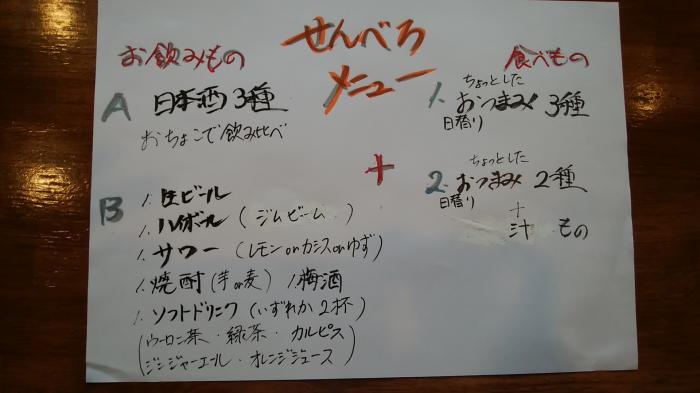 せんべろ
メニュー
お飲みもの
A 日本酒3種
おちょこで飲み比べ
B
1. 生ビール
1. ハイボール（ジムビーム）
1. サワー（レモンorカシスorゆず）
1. 焼酎（芋or麦） 1. 梅酒
1. ソフトドリンク（いずれか2杯）
（ウーロン茶・緑茶・カルピス
ジンジャーエール・オレンジジュース）
+
食べもの
ちょっとした
1. おつまみ 3種
日替り
ちょっとした
2. おつまみ 2種
日替り
+
汁もの